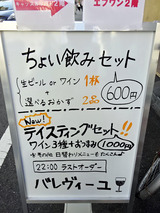 エフワン2階
ちょい飲みセット
生ビール or ワイン 1杯
+
選べるおかず 2品
600円
New!
テイスティングセット!!
ワイン3種+おつまみ 1000円
☆その他 日替わりメニューもたくさん
22:00 ラストオーダー
バレヴィーユ